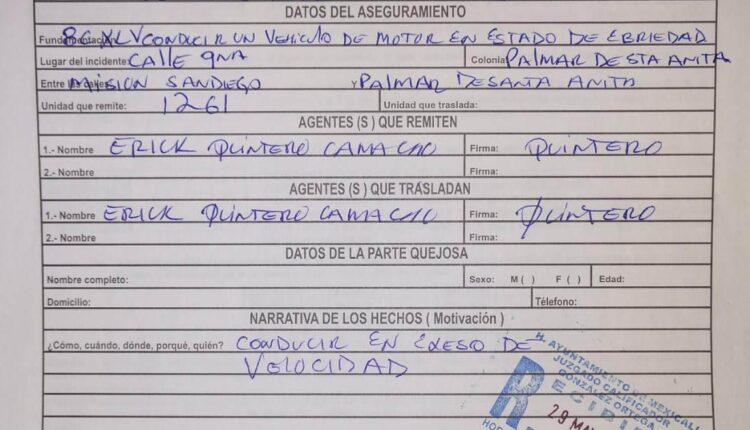 DATOS DEL ASEGURAMIENTO
Fundamentación: 86 XLV CONDUCIR UN VEHICULO DE MOTOR EN ESTADO DE EBRIEDAD
Lugar del incidente: CALLE 9NA Colonia: PALMAR DE STA ANITA
Entre las calles: MISION SANDIEGO Y PALMAR DE SANTA ANITA
Unidad que remite: 1261 Unidad que traslada:
AGENTES (S) QUE REMITEN
1.- Nombre ERICK QUINTERO CAMACHO Firma: QUINTERO
2.- Nombre Firma:
AGENTES (S) QUE TRASLADAN
1.- Nombre ERICK QUINTERO CAMACHO Firma: QUINTERO
2.- Nombre Firma:
DATOS DE LA PARTE QUEJOSA
Nombre completo: Sexo: M ( ) F ( ) Edad:
Domicilio: Téléfono:
NARRATIVA DE LOS HECHOS ( Motivación )
¿Cómo, cuándo, dónde, porqué, quién? CONDUCIR EN EXESO DE
VELOCIDAD
H. AYUNTAMIENTO DE MEXICALI
JUZGADO CALIFICADOR
GONZÁLEZ ORTEGA
RECIBI
29